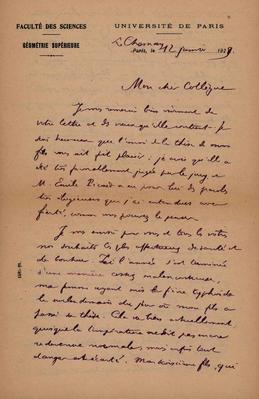 FACULTÉ DES SCIENCES
UNIVERSITÉ DE PARIS
GÉOMÉTRIE SUPÉRIEURE
Le Chesnay
Paris, le 12 janvier 192
Mon cher Collègue
Je vous remercie bien vivement de
votre lettre et des vœux qu'elle contient. Je
suis heureux que l'envoi de la thèse de mon
fils vous ait fait plaisir; je crois qu'elle a
été très favorablement jugée par le jury et
M. Emile Picard a eu pour lui des paroles
très élogieuses que j'ai entendues avec
fierté, comme vous pouvez le penser.
Je vous envoie pour vous et tous les vôtres
nos souhaits les plus affectueux de santé et
de bonheur. Ici l'année s'est terminée
d'une manière assez malencontreuse,
ma femme ayant pris la fièvre typhoïde
le surlendemain du jour où mon fils a
passé sa thèse. Elle va bien actuellement,
quoique la température ne soit pas encore
redevenue normale, mais enfin tout
danger est écarté. Mon troisième fils, qui